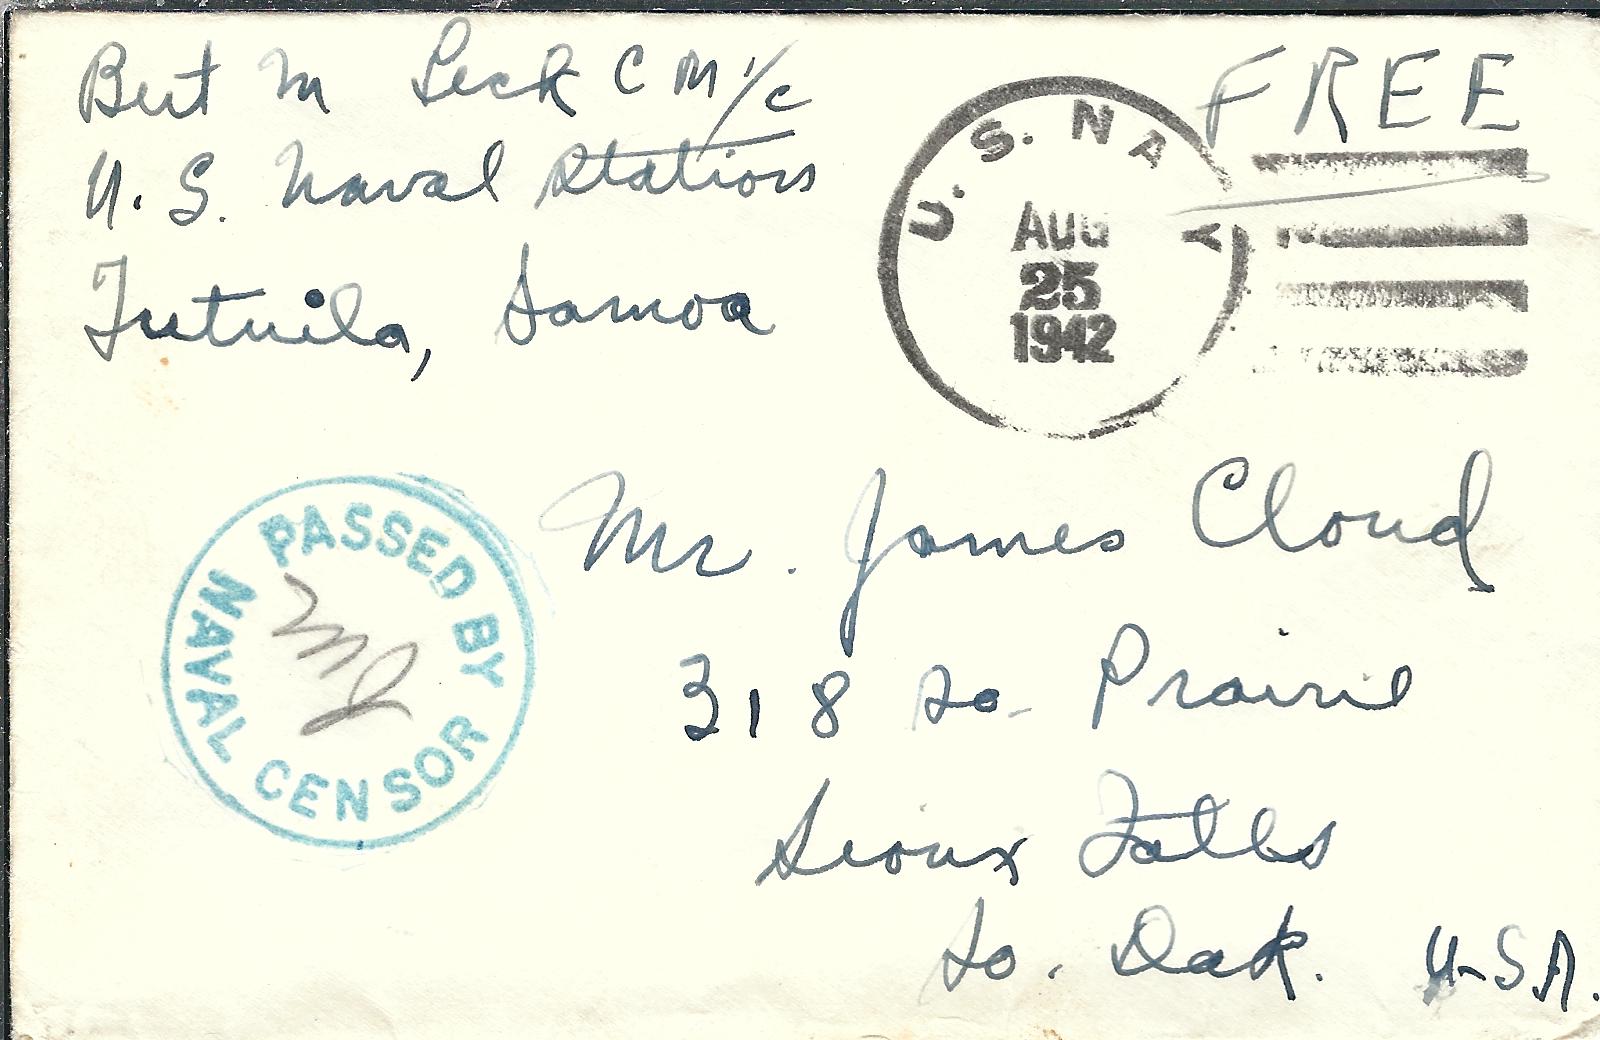 Bert M Leck C M 1/c
U. S. Naval Station
Tutuila, Samoa
FREE
U. S. NAVY
AUG
25
1942
PASSED BY
NAVAL CENSOR
Mr. James Cloud
318 So. Prairie
Sioux Falls
So. Dak. U-SA.